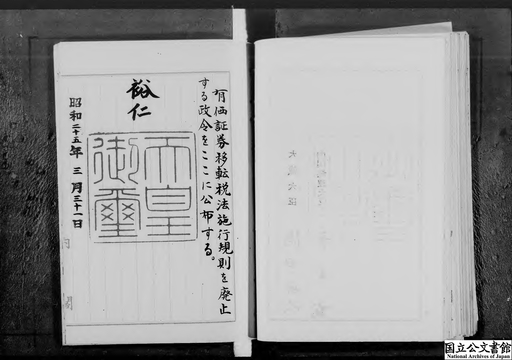 有価証券移転税法施行規則を廃止
する政令をここに公布する。
裕仁
天皇
御璽
昭和二十五年三月三十一日
国立公文書館
National Archives of Japan